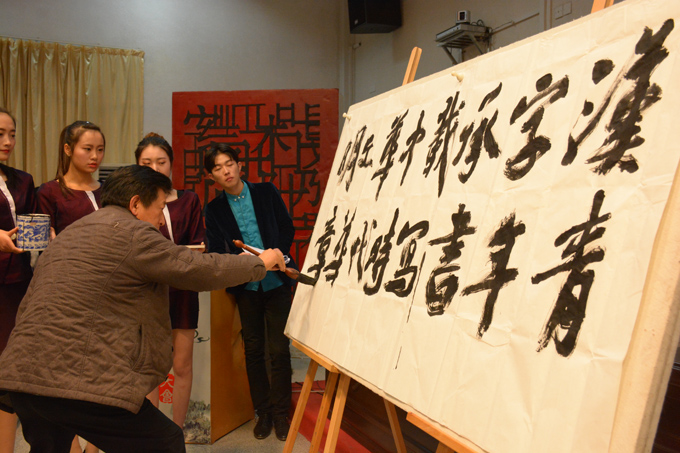 漢字承載中華文明
青年書寫時代華章